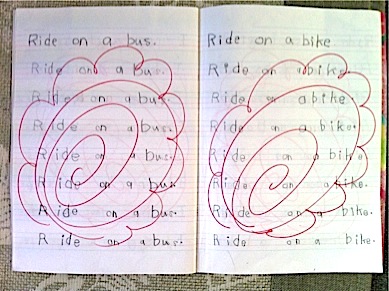 Ride on a bus.
Ride on a bus.
Ride on a bus.
Ride on a bus.
Ride on a bus.
Ride on a bus.
Ride on a bus.
Ride on a bus.
Ride on a bike.
Ride on a bike.
Ride on a bike.
Ride on a bike.
Ride on a bike.
Ride on a bike.
Ride on a bike.
Ride on a bike.